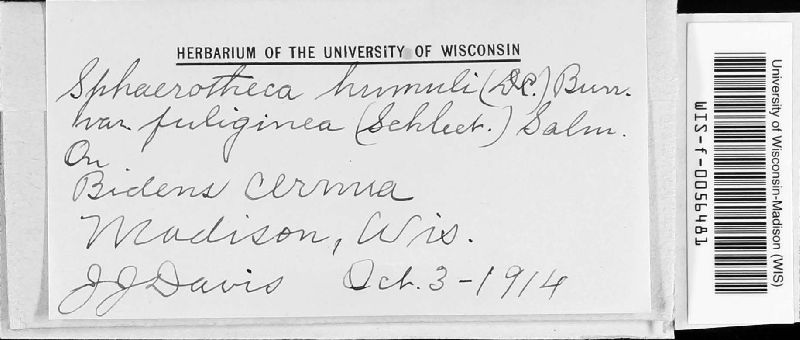 HERBARIUM OF THE UNIVERSITY OF WISCONSIN
Sphaerotheca humuli (DC.) Burr.
var. fuliginea (Schlect.) Salm.
On
Bidens cernua
Madison, Wis.
J J Davis Oct. 3-1914
University of Wisconsin-Madison (WIS)
WIS-f-0056481